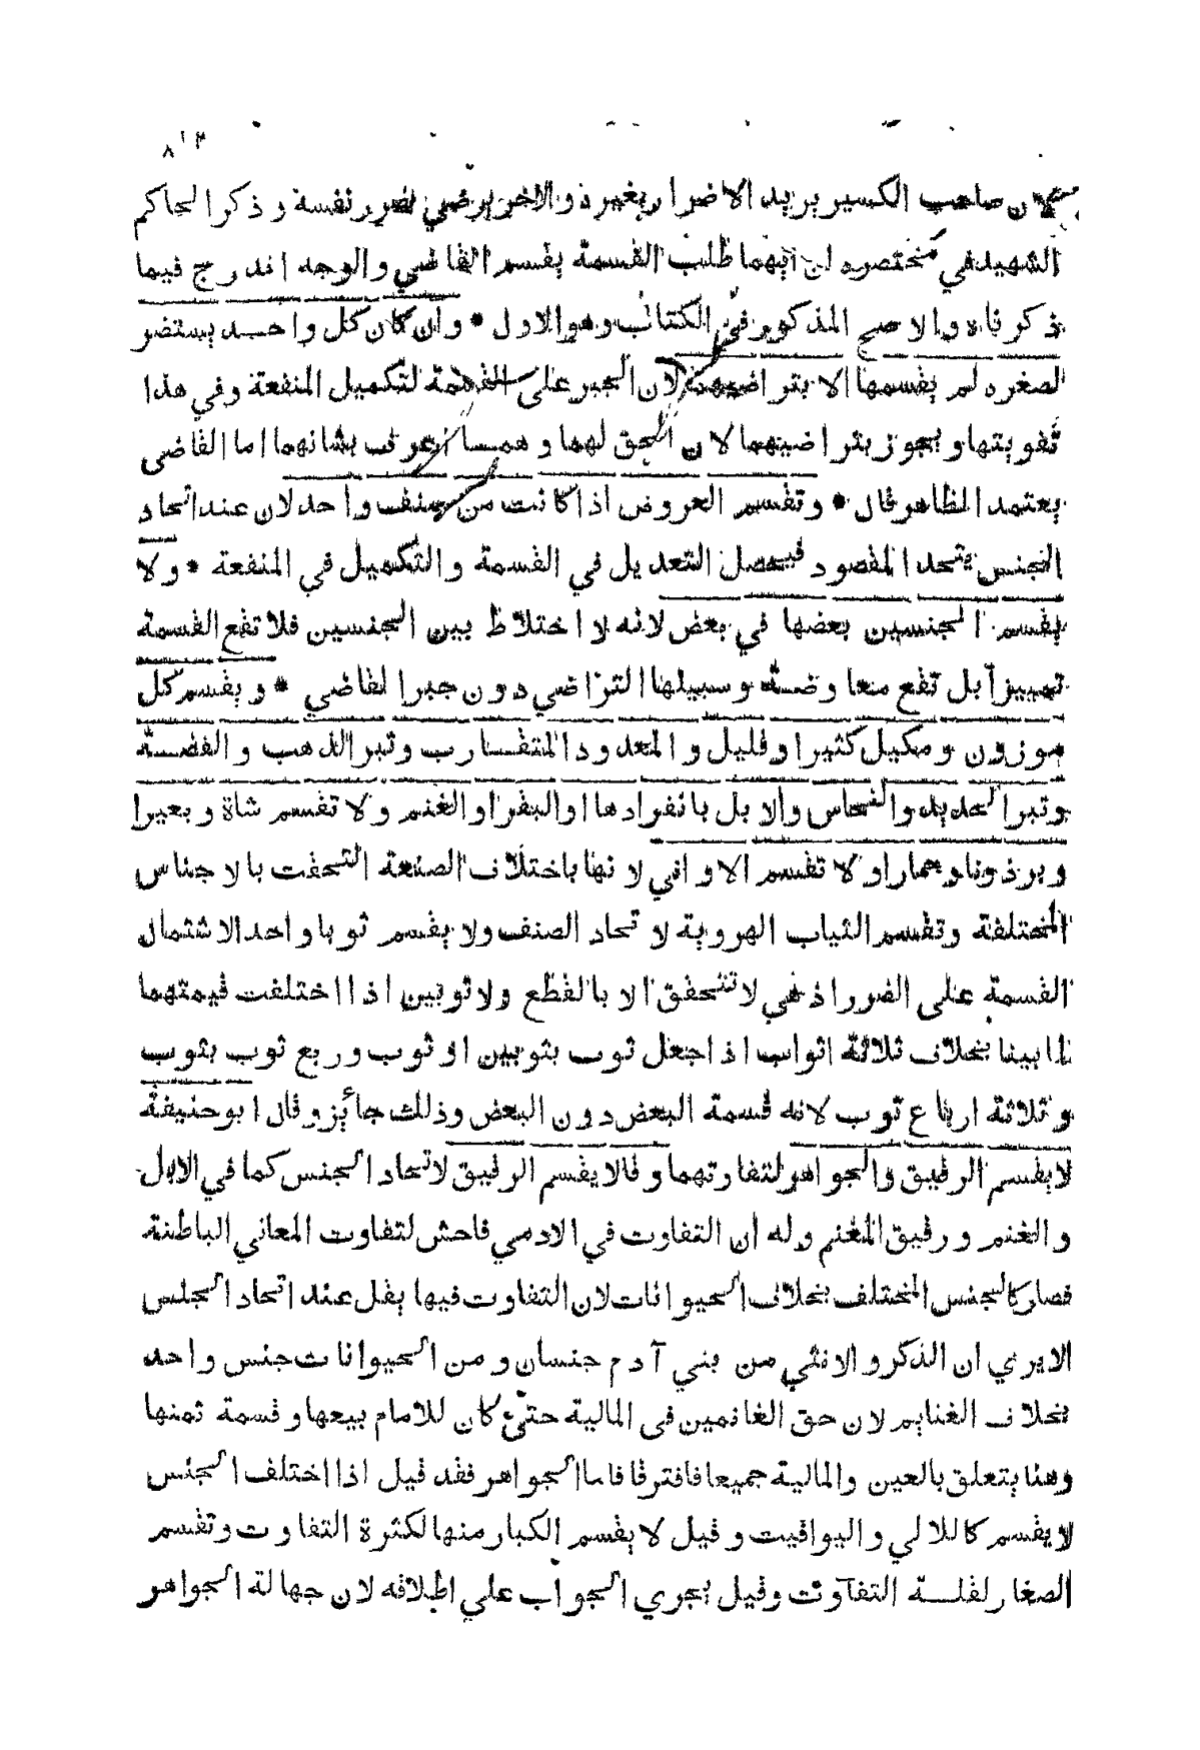 ٨١٣
لان صاحب الكسير يريد الاضرار بغيره والاخر يرضي بضرر نفسه و ذكر الحاكم
الشهيد في مختصره ان ايهما طلب القسمة يقسم القاضي والوجه اندرج فيما
ذكرناه والاصح المذكور في الكتاب وهو الاول * وان كان كل واحد يستضر
لصغره لم يقسمها الا بتراضيهما لان الجبر على القسمة لتكميل المنفعة وفي هذا
تفويتها و يجوز بتراضيهما لان الحق لهما و هما اعرف بشانهما اما القاضى
يعتمد الظاهر قال * و تقسم العروض اذا كانت من صنف واحد لان عند اتحاد
الجنس يتحد المقصود فيحصل التعديل في القسمة و التكميل في المنفعة * و لا
يقسم الجنسين بعضها في بعض لانه لا اختلاط بين الجنسين فلا تقع القسمة
تمييزا بل تقع معاوضة و سبيلها التراضي دون جبر القاضي * و يقسم كل
موزون و مكيل كثير او قليل و المعدود المتقارب و تبر الذهب و الفضة
و تبر الحديد والنحاس والابل بانفرادها او البقر او الغنم و لا تقسم شاة و بعيرا
و برذونا و حمارا و لا تقسم الاواني لانها باختلاف الصنعة التحقت بالاجناس
المختلفة و تقسم الثياب الهروية لاتحاد الصنف ولا يقسم ثوبا واحدا لاشتمال
القسمة على الضرر اذ هي لا تتحقق الا بالقطع و لا ثوبين اذا اختلفت قيمتهما
لما بينا بخلاف ثلاثة اثواب اذا جعل ثوب بثوبين او ثوب و ربع ثوب بثوب
و ثلاثة ارباع ثوب لانه قسمة البعض دون البعض وذلك جائز و قال ابو حنيفة
لا يقسم الرقيق والجواهر لتفاوتهما و قالا يقسم الرقيق لاتحاد الجنس كما في الابل
و الغنم و رقيق المغنم و له ان التفاوت في الادمي فاحش لتفاوت المعاني الباطنة
فصار كالجنس المختلف بخلاف الحيوانات لان التفاوت فيها يقل عند اتحاد الجنس
الا يري ان الذكر و الانثي من بني آدم جنسان و من الحيوانات جنس واحد
بخلاف الغنايم لان حق الغانمين في المالية حتي كان للامام بيعها و قسمة ثمنها
وهنا يتعلق بالعين والمالية جميعا فافترقا فاما الجواهر فقد قيل اذا اختلف الجنس
لا يقسم كاللالي و اليواقيت و قيل لا يقسم الكبار منها لكثرة التفاوت وتقسم
الصغار لقلة التفاوت وقيل يجري الجواب علي اطلاقه لان جهالة الجواهر